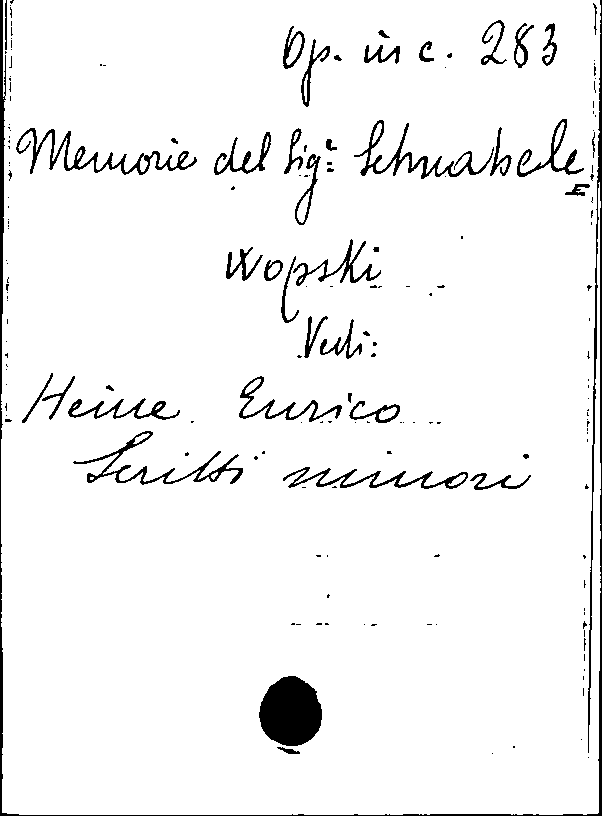 Op. in c. 283
Memorie del Sig.r Schnabele
wopski
Vedi:
Heine Enrico
Scritti minori